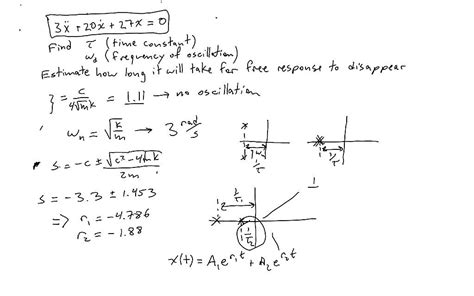 3ẍ + 20ẋ + 27x = 0
Find τ (time constant)
ω_d (frequency of oscillation)
Estimate how long it will take for free response to disappear
ζ = c/4√mk = 1.11 → no oscillation
ω_n = √(k/m) → 3 rad/s
s = -c ± √(c² - 4mk) / 2m
s = -3.3 ± 1.453
⇒ r₁ = -4.786
r₂ = -1.88
x(t) = A₁e^{r₁t} + A₂e^{r₂t}